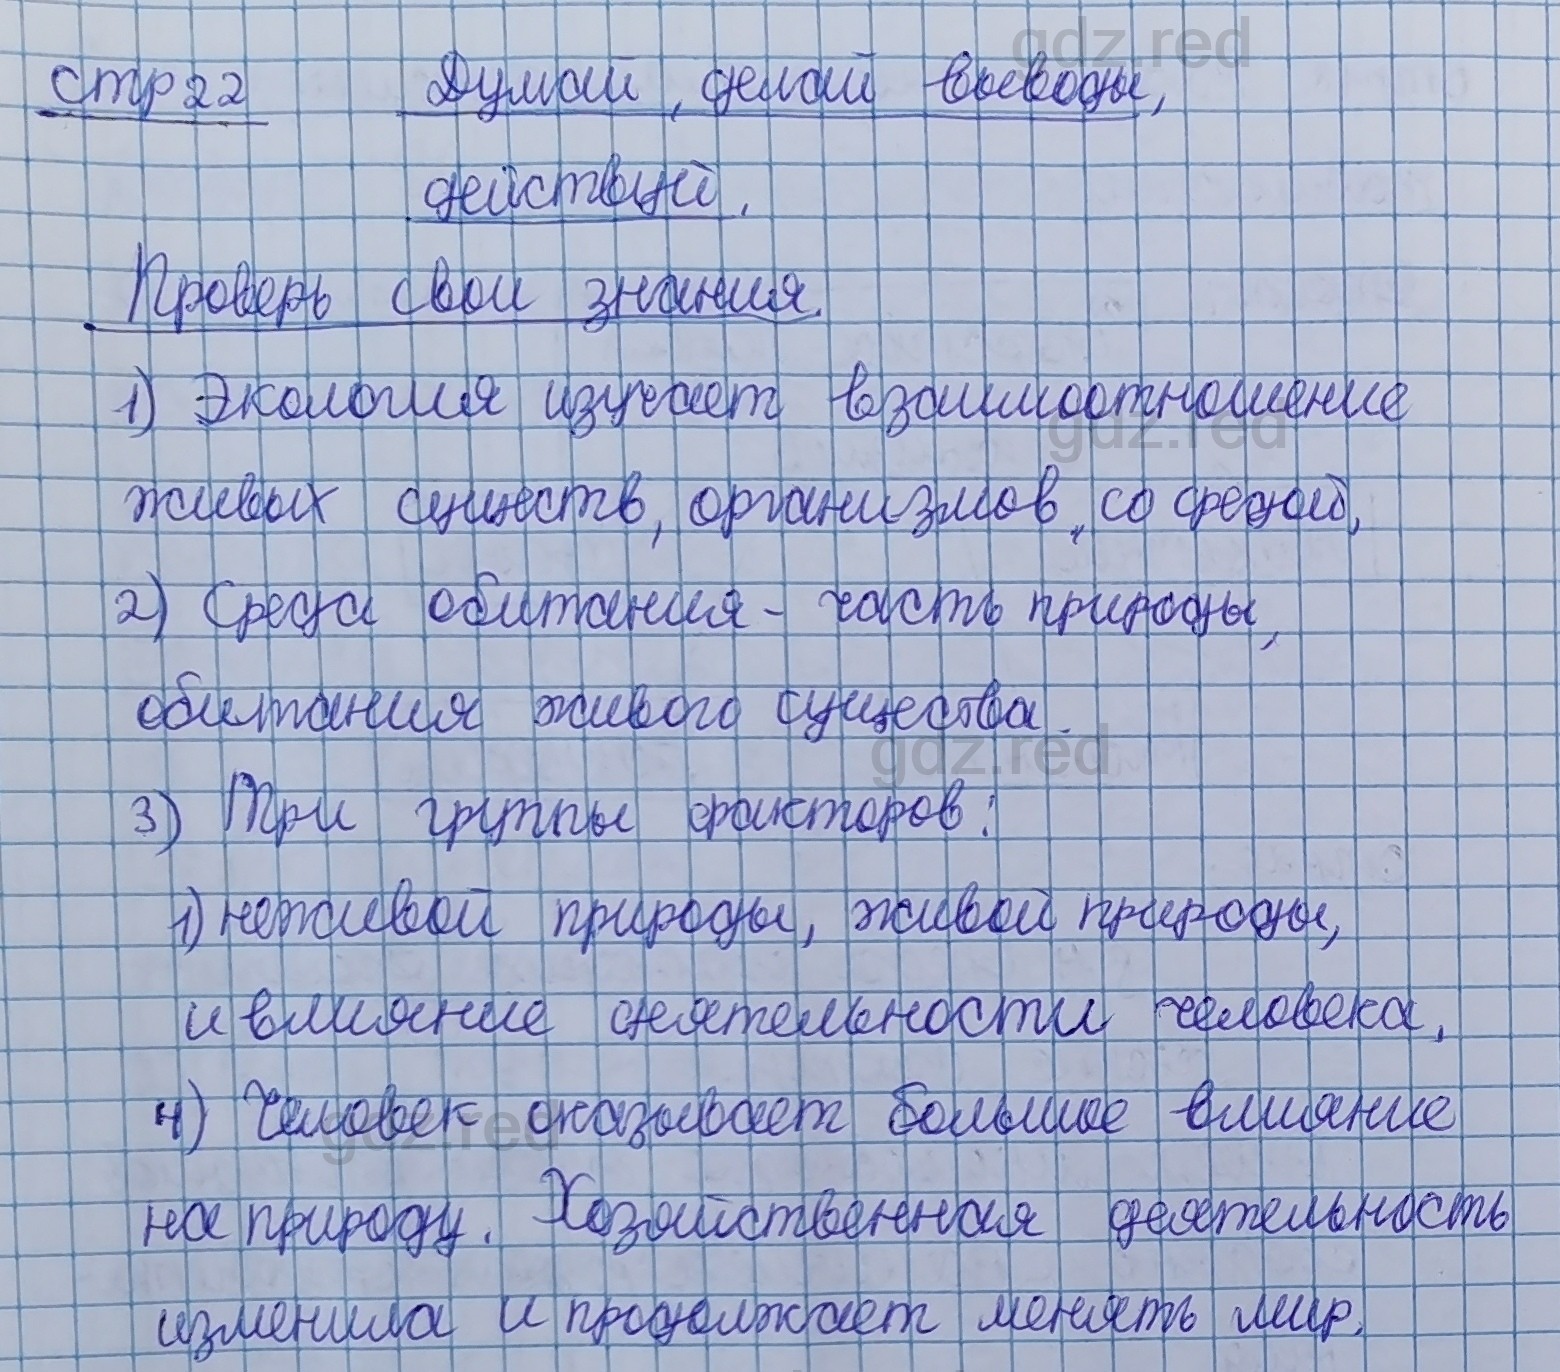 стр 22 Думай, делай выводы,
действуй.
Проверь свои знания.
1) Экология изучает взаимоотношение
живых существ, организмов, со средой,
2) Среда обитания - часть природы,
обитания живого существа.
3) Три группы факторов:
1) неживой природы, живой природы,
и влияние деятельности человека,
4) Человек оказывает большое влияние
на природу. Хозяйственная деятельность
изменила и продолжает менять мир.
gdz.red
gdz.red
gdz.red
gdz.red